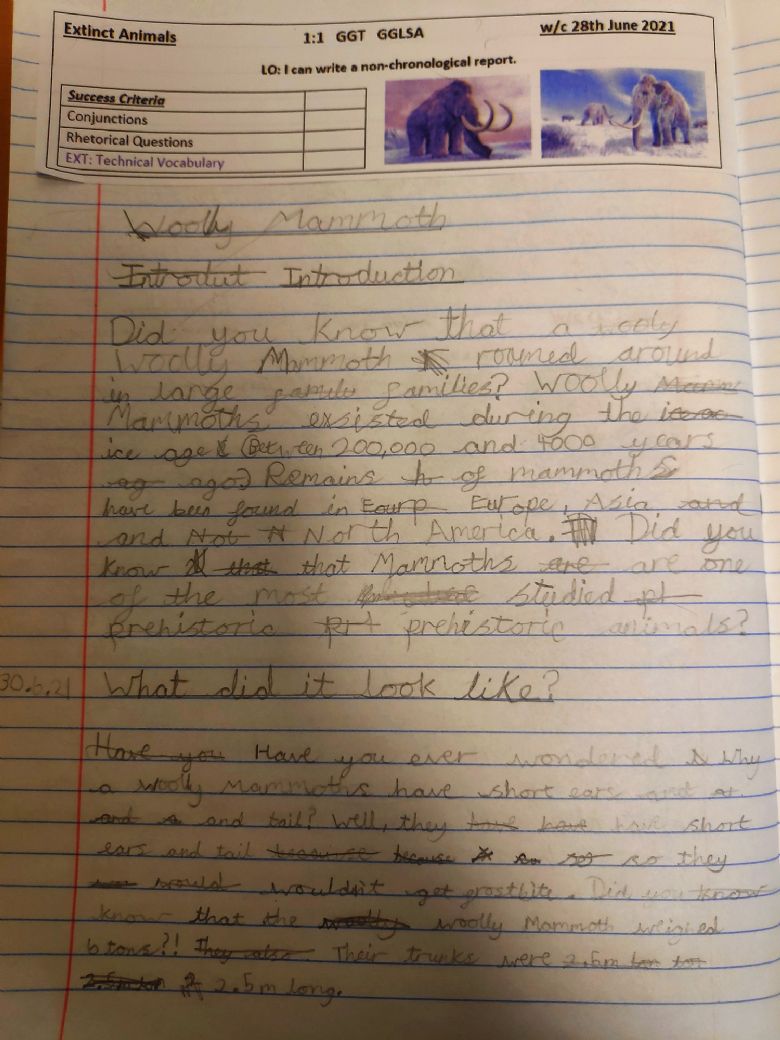 Extinct Animals 1:1 GGT GGLSA w/c 28th June 2021
LO: I can write a non-chronological report.
Success Criteria
Conjunctions
Rhetorical Questions
EXT: Technical Vocabulary
Woolly Mammoth
Introdut Introduction
Did you know that a wooly
Woolly Mammoth roamed around
in large family families? Woolly Mamm
Mammoths exsisted during the
ice age (Between 200,000 and 4000 years
ag ago) Remains of mammoths
have been found in Eourp Europe, Asia and
and Not N North America. Did you
know that that Mammoths are are one
of the most studied pt
prehistoric prt prehistoric animals?
30.6.21 What did it look like?
Have you Have you ever wondered why
a woolly Mammoths have short ears and
and a and tail? Well, they have have have short
ears and tail because because so they
would wouldn't get frostbite. Did you know
know that the woolly woolly Mammoth weighed
6 tons?! They also Their trunks were 2.6m
2.5m 2.5m long.